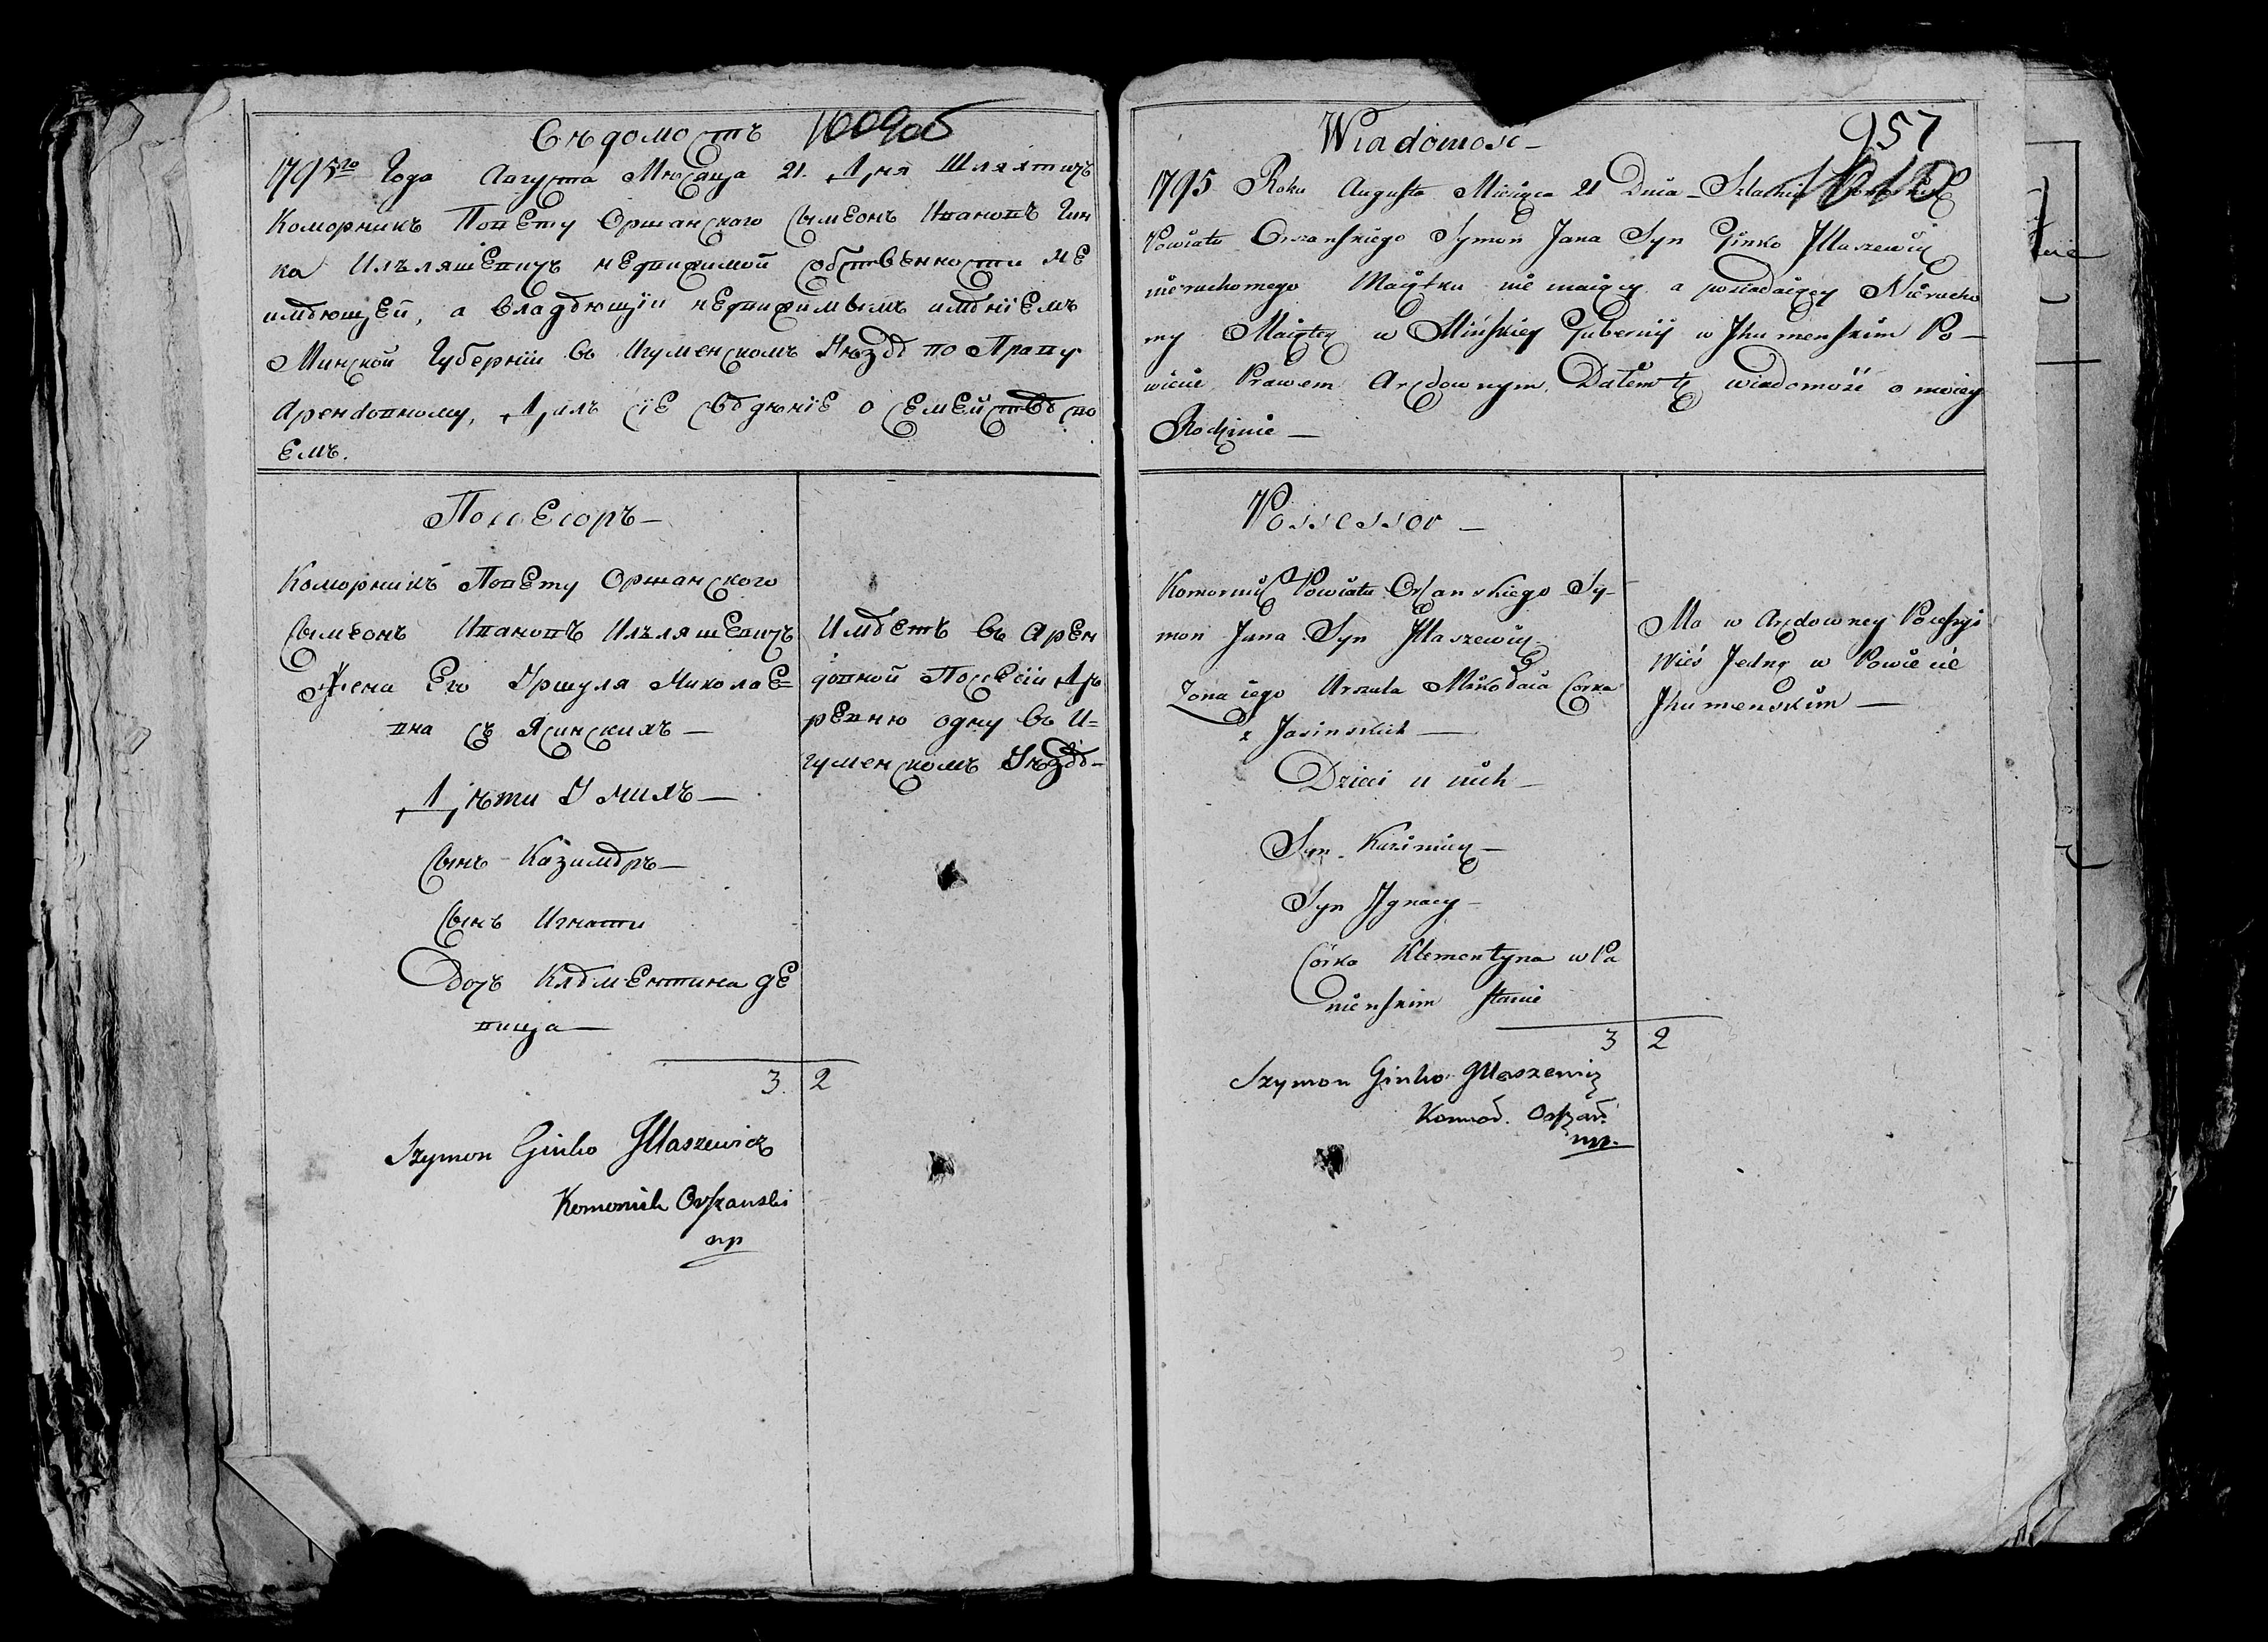 Вѣдомость 1009об
1795го Года Августа Месяца 21. Дня Шляхтичъ
Коморникъ Повету Оршанского Сымеонъ Ивановъ Гин
ка Илъляшевичъ недвижимой собственности не
имѣющей, а владѣющiи недвижимымъ имѣнiемъ
Минской Губернiи въ Игуменскомъ Уездѣ по Праву
Арендовному, Далъ сiе свѣденiе о семействѣ сво
емъ.
Поссесоръ —
Коморникъ Повету Оршанского
Сымеонъ Ивановъ Илъляшевичъ
Жена Его Уршуля Миколае=
вна съ Ясинскихъ —
Дѣти У нихъ —
Сынъ Казимѣръ —
Сынъ Игнати
Дочь Клѣментина де
вица —
Имѣетъ въ Арен
довной Поссесiи Де
ревню одну въ И=
гуменскомъ Уездѣ —
3. 2
Szymon Ginko Jllaszewicz
Komornik Orszanski
mp
Wiadomosc —
957
1010
1795 Roku Augusta Miesięca 21 Dnia — Szlachcic
Powiatu Orszanskiego Symon Jana Syn Ginko Jllaszewicz
nieruchomego Maiątku nie maiący a posiadaiący Nierucho
my Maiątek w Mińskiey Gubernij w Jhumenskim Po —
wiecie Prawem Arędownym. Dałem tę wiadomość o moiey
Rodzinie —
Possessor —
Komornik Powiatu Orszanskiego Sy-
mon Jana Syn Jllaszewicz
Zona iego Urszula Mikołaia Corka
z Jasinskich —
Dzieci u nich —
Syn Kazimierz —
Syn Jgnacy —
Corka Klementyna w Pa
nienskim stanie
Ma w Arędowney Possessyi
Wieś Jedną w Powiecie
Jhumenskim —
3 2
Szymon Ginko Jllaszewicz
Orszań.
mp.